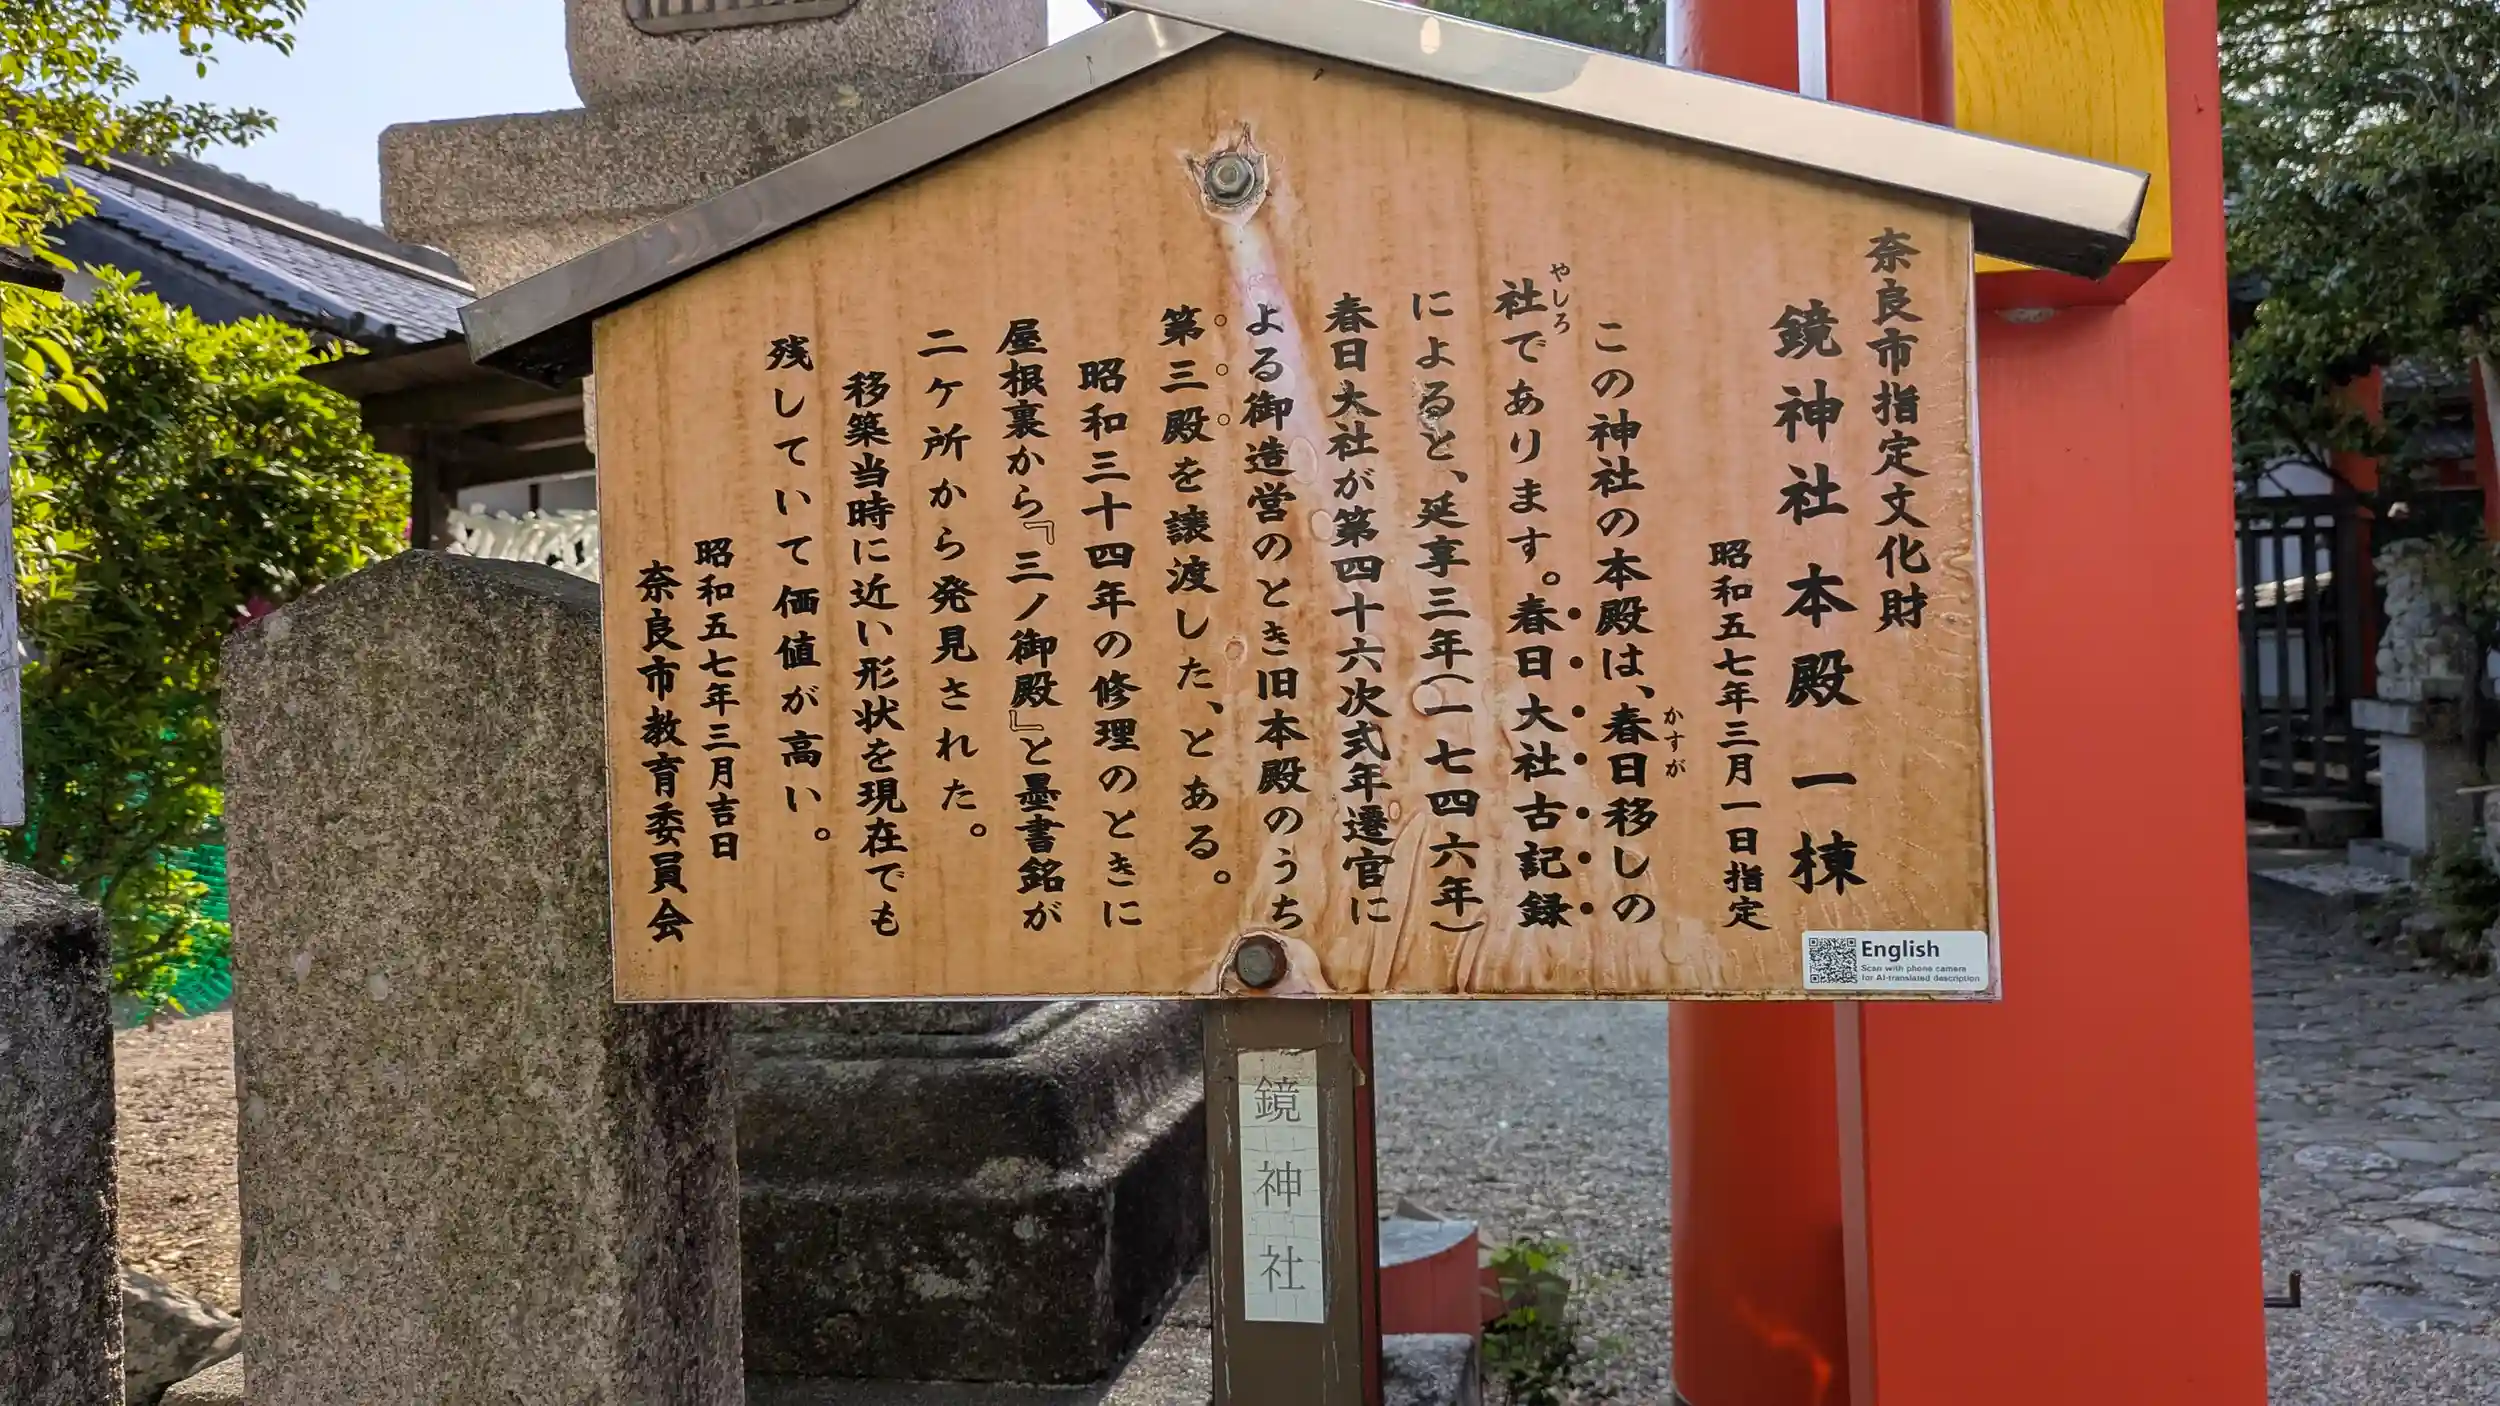 奈良市指定文化財
鏡神社本殿一棟
昭和五七年三月一日指定
この神社の本殿は、春日移しの
かすが
社であります。春日大社古記録
やしろ
によると、延享三年(一七四六年)
春日大社が第四十六次式年遷官に
よる御造営のとき旧本殿のうち
第三殿を譲渡した、とある。
昭和三十四年の修理のときに
屋根裏から『三ノ御殿』と墨書銘が
二ケ所から発見された。
移築当時に近い形状を現在でも
残していて価値が高い。
昭和五七年三月吉日
奈良市教育委員会
English
Scan with phone camera
for AI-translated description
鏡神社